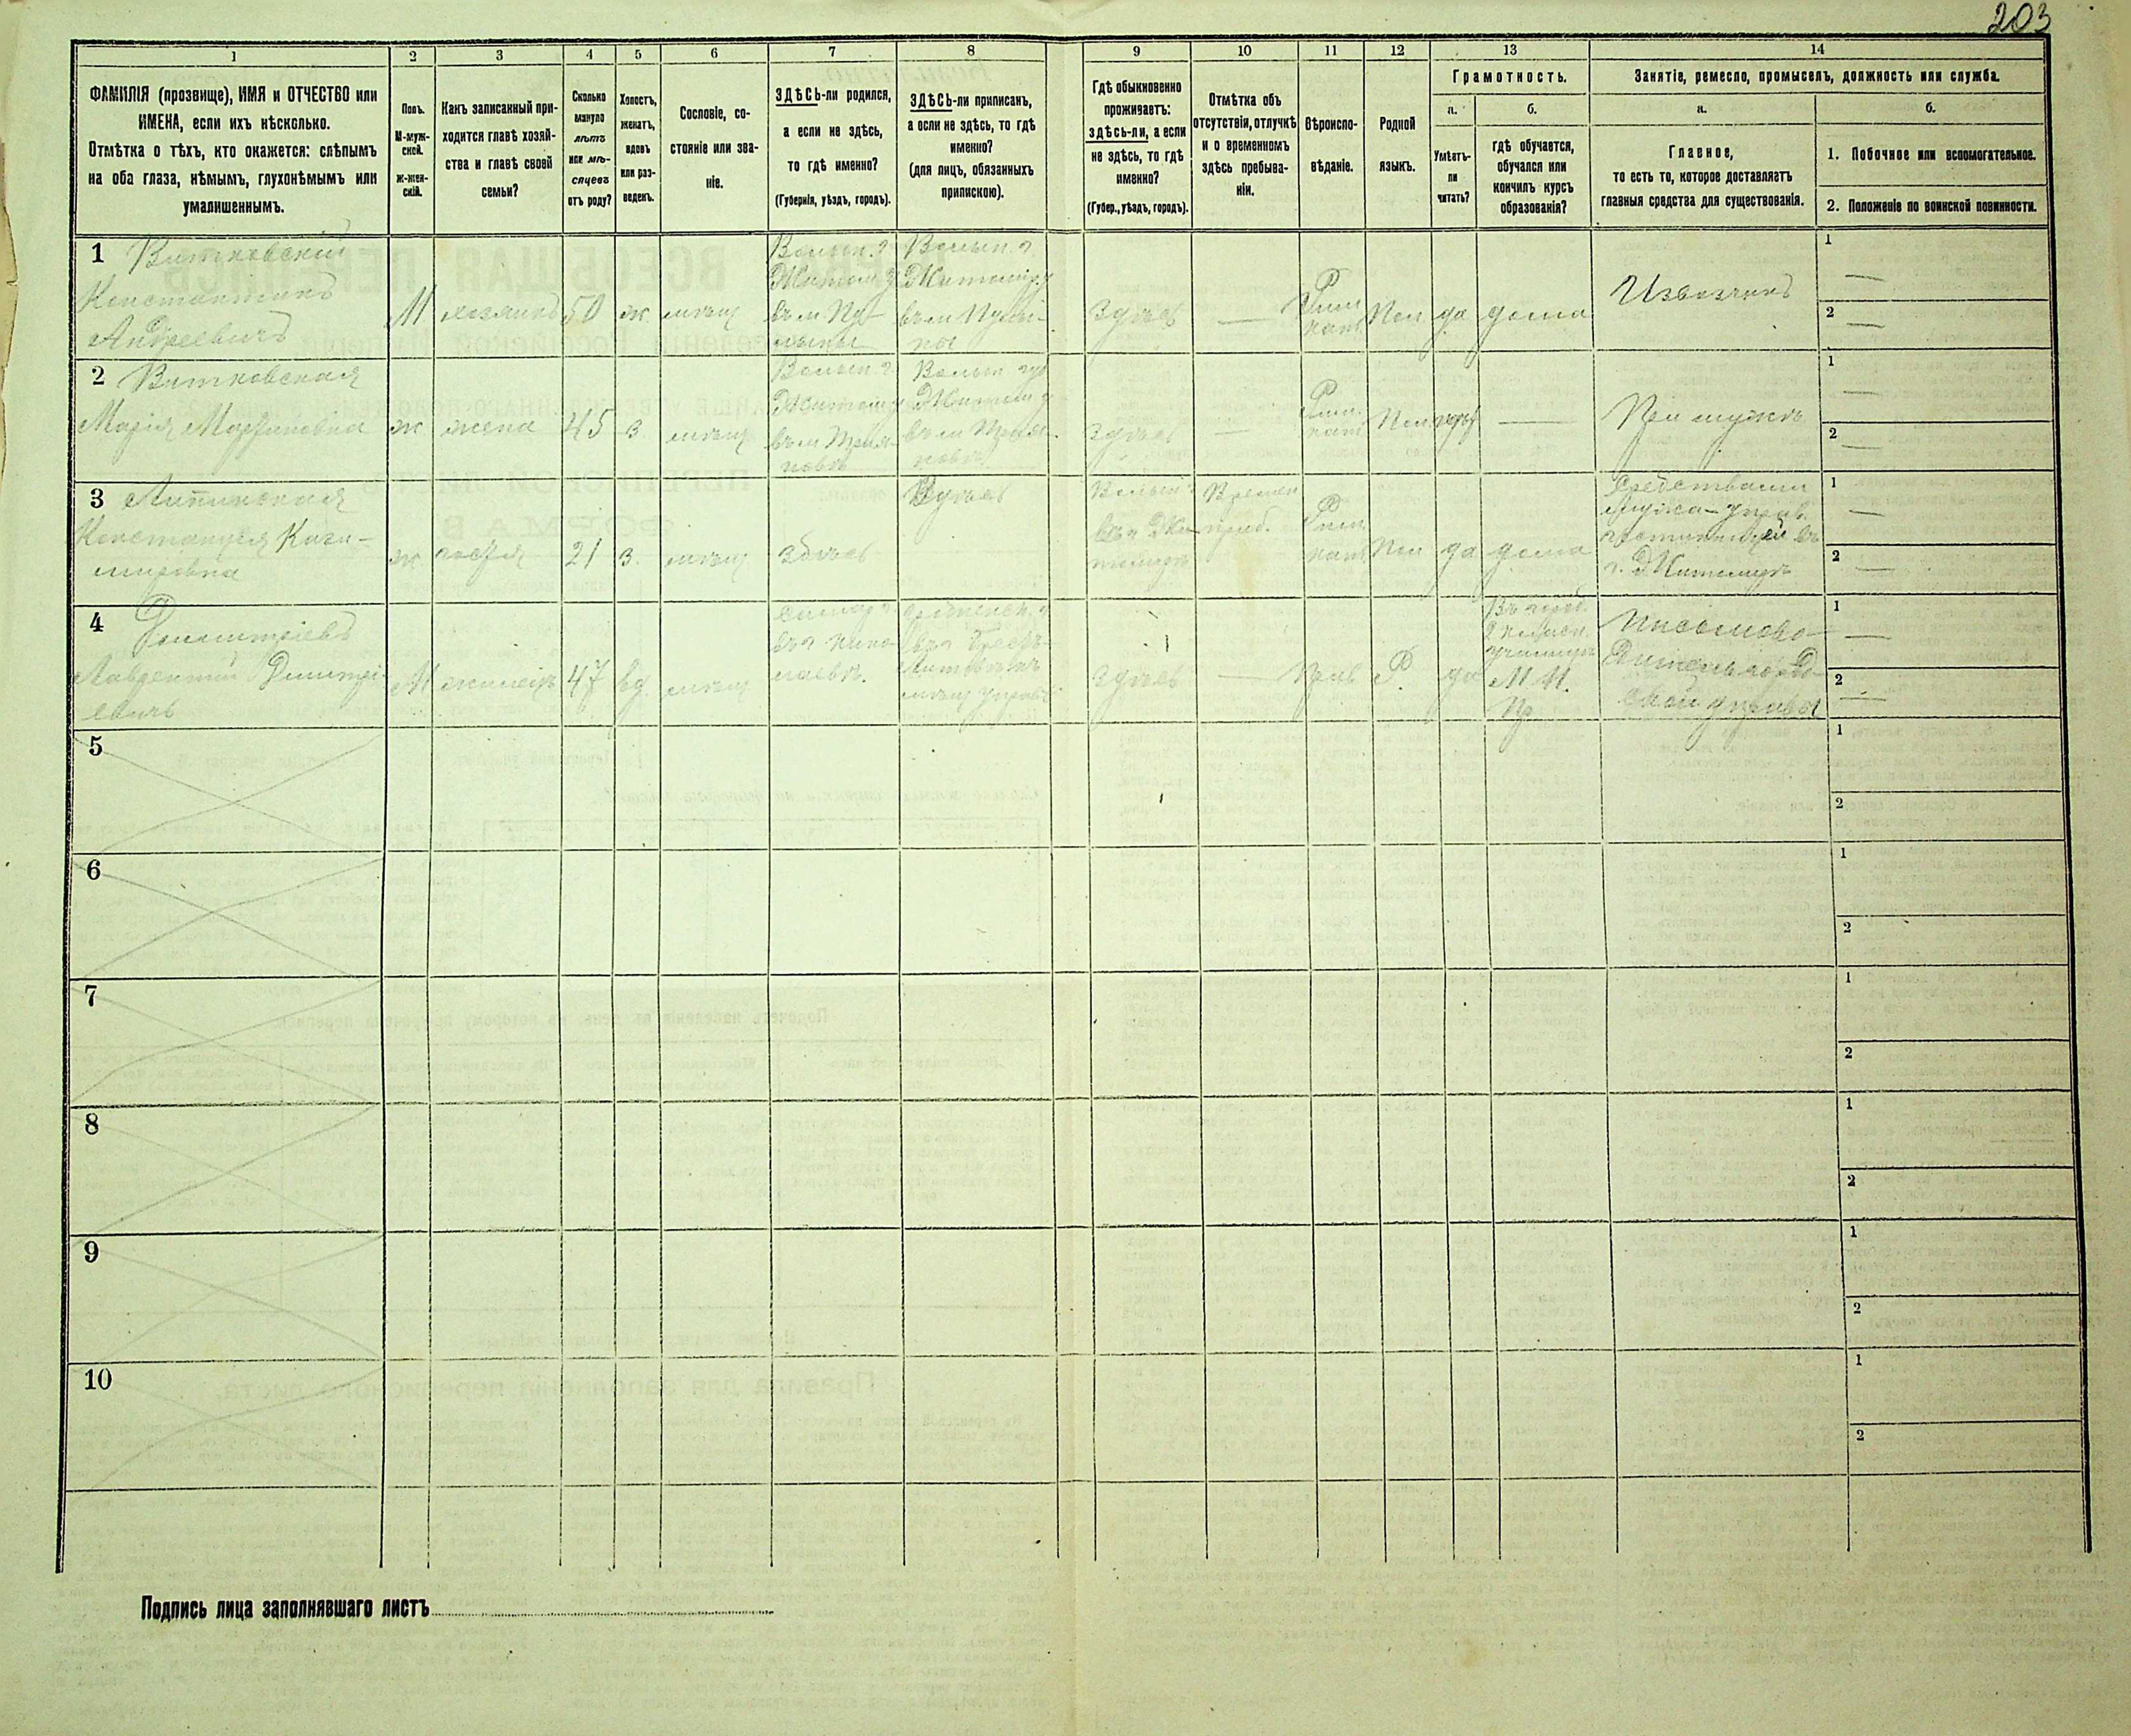 203
1
2
3
4
5
6
7
8
9
10
11
12
13
14
ФАМИЛІЯ (прозвище), ИМЯ и ОТЧЕСТВО или
ИМЕНА, если ихъ нѣсколько.
Отмѣтка о тѣхъ, кто окажется: слѣпымъ
на оба глаза, нѣмымъ, глухонѣмымъ или
умалишеннымъ.
Полъ.
М-муж-
ской.
ж-жен-
скій.
Какъ записанный при-
ходится главѣ хозяй-
ства и главѣ своей
семьи?
Сколько
минуло
лѣтъ
или мѣ-
сяцевъ
отъ роду?
Холостъ,
женатъ,
вдовъ
или раз-
веденъ.
Сословіе, со-
стояніе или зва-
ніе.
ЗДѢСЬ-ли родился,
а если не здѣсь,
то гдѣ именно?
(Губернія, уѣздъ, городъ).
ЗДѢСЬ-ли приписанъ,
а если не здѣсь, то гдѣ
именно?
(для лицъ, обязанныхъ
припискою).
Гдѣ обыкновенно
проживаетъ:
здѣсь-ли, а если
не здѣсь, то гдѣ
именно?
(Губер., уѣздъ, городъ).
Отмѣтка объ
отсутствіи, отлучкѣ
и о временномъ
здѣсь пребыва-
ніи.
Вѣроиспо-
вѣданіе.
Родной
языкъ.
Грамотность.
а.
Умѣетъ-
ли
читать?
б.
гдѣ обучается,
обучался или
кончилъ курсъ
образованія?
Занятіе, ремесло, промыселъ, должность или служба.
а.
Главное,
то есть то, которое доставляетъ
главныя средства для существованія.
б.
1. Побочное или вспомогательное.
2. Положеніе по воинской повинности.
1 Витковскій
Константинъ
Андреевичъ
М
хозяинъ
50
ж
мѣщ
Волын. г
Житом у
въ м Пу-
лины
Волын. г
Житомір. у
въ м Пули-
ны
Здѣсь
—
Рим
кат
Пол
да
дома
Извозчикъ
1
—
2
—
2 Витковская
Марія Мартиновна
ж
жена
45
з.
мѣщ
Волын г
Житом у
Волын губ
Житом у
Здѣсь
—
Рим.
кат
Пол
нѣтъ
—
При мужѣ
1
—
2
—
3 Липинская
Констанція Кази-
мировна
ж
гостья
21
з.
мѣщ
здѣсь
Здѣсь
Волын г
въ г Жи-
томірѣ
Времен
приб.
Рим
кат
Пол
да
дома
Средствами
мужа — управ.
гостинницей въ
г. Житомірѣ
1
—
2
—
4 Димитріевъ
Лаврентій Димитрі-
евичъ
М
жилецъ
47
вд.
мѣщ
Здѣсь
—
Прав
Р.
да
Въ город.
2 класн.
училищѣ
М. Н.
Пр.
Письмово-
дитель город-
ской управы
1
—
2
—
5
1
2
6
1
2
7
1
2
8
1
2
9
1
2
10
1
2
Подпись лица заполнявшаго листъ